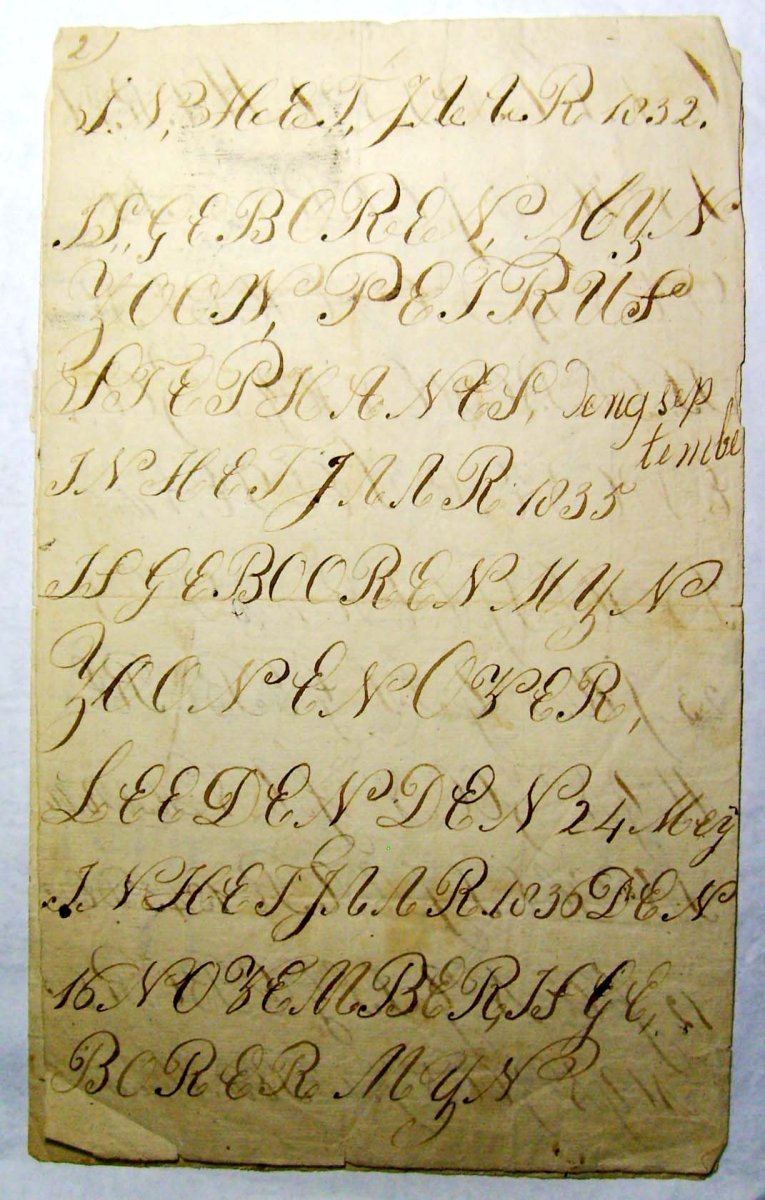 2)
IN, HEET, JAAR 1832.
IS, GEBOREN, MYN
ZOON, PETRUS
STEPHANES, den 9 sep
tember
IN HET JAAR 1835
IS GEBOOREN MYN
ZOON EN OVER,
LEEDEN DEN 24 Mey
IN HET JAAR 1836 DEN
16 NOVEMBER, IS GE,
BORER MYN